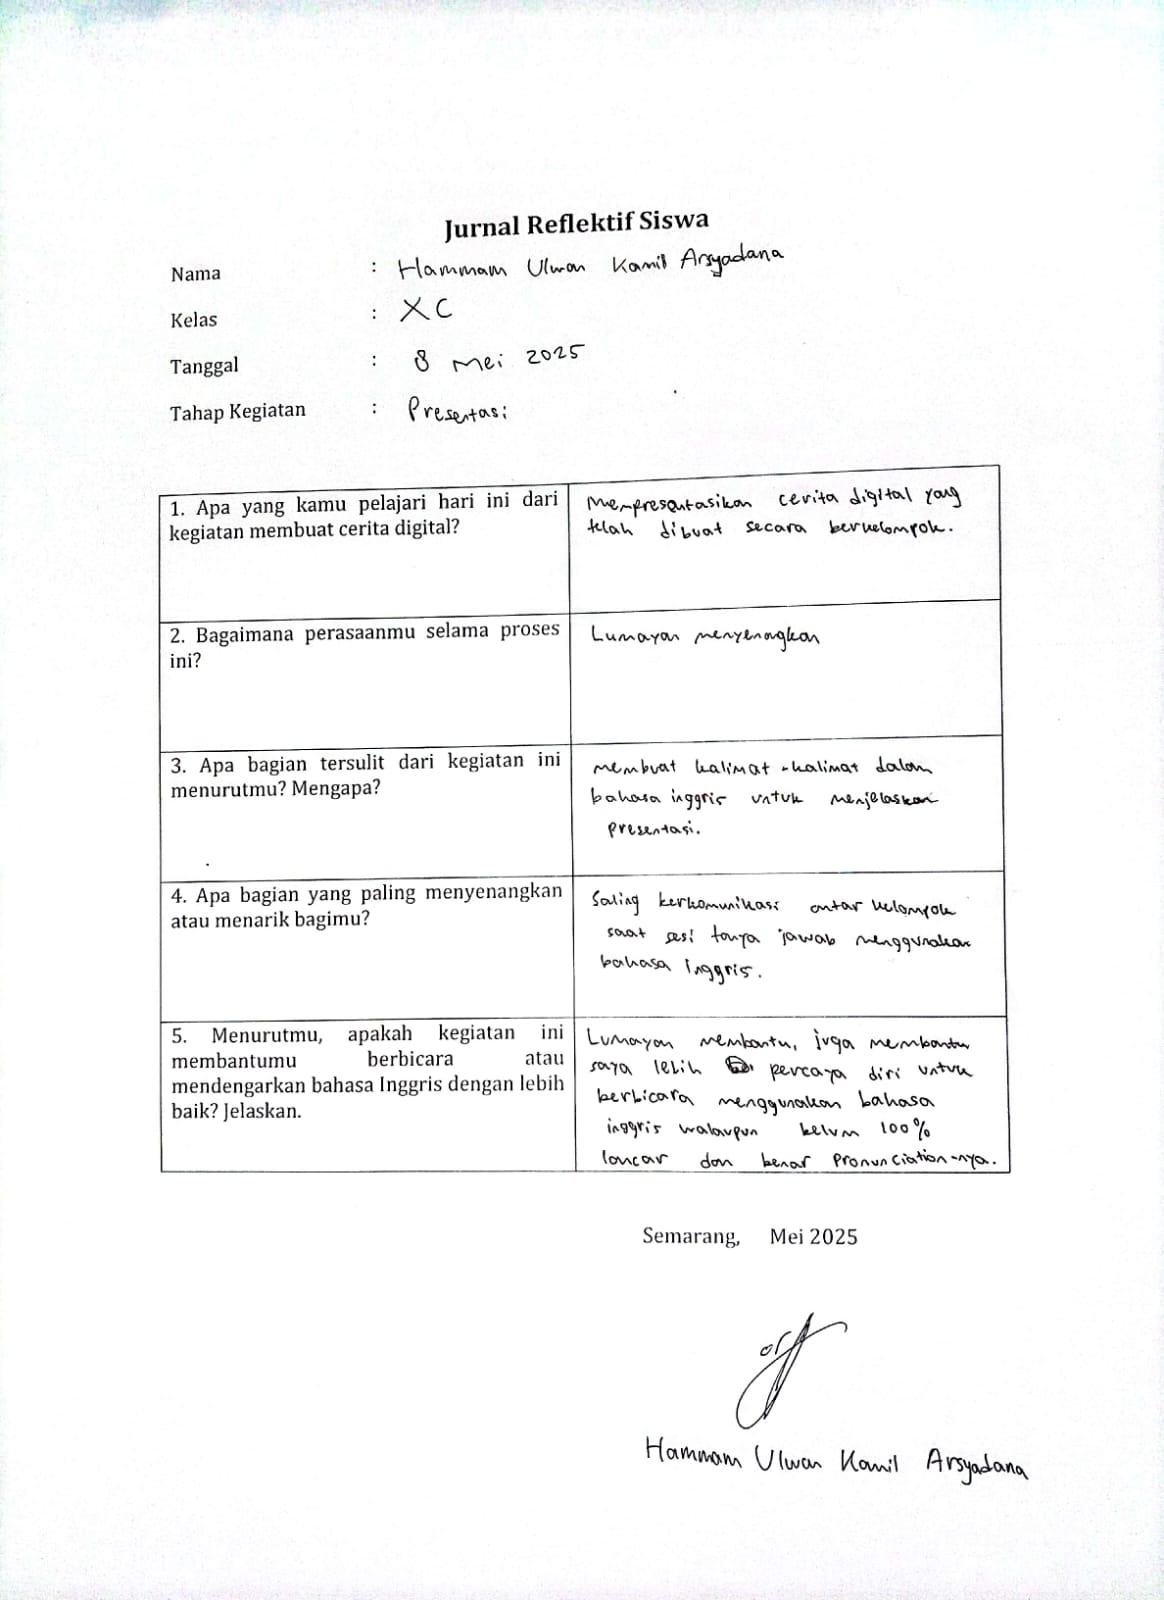 Jurnal Reflektif Siswa
Nama : Hammam Ulwan Kamil Arsyadana
Kelas : XC
Tanggal : 8 Mei 2025
Tahap Kegiatan : Presentasi
1. Apa yang kamu pelajari hari ini dari
kegiatan membuat cerita digital?
Mempresentasikan cerita digital yang
telah dibuat secara berkelompok.
2. Bagaimana perasaanmu selama proses
ini?
Lumayan menyenangkan
3. Apa bagian tersulit dari kegiatan ini
menurutmu? Mengapa?
membuat kalimat-kalimat dalam
bahasa inggris untuk menjelaskan
presentasi.
4. Apa bagian yang paling menyenangkan
atau menarik bagimu?
Saling berkomunikasi antar kelompok
saat sesi tanya jawab menggunakan
bahasa Inggris.
5. Menurutmu, apakah kegiatan ini
membantumu berbicara atau
mendengarkan bahasa Inggris dengan lebih
baik? Jelaskan.
Lumayan membantu, juga membantu
saya lebih percaya diri untuk
berbicara menggunakan bahasa
inggris walaupun belum 100%
lancar dan benar pronunciation-nya.
Semarang, Mei 2025
Hammam Ulwan Kamil Arsyadana